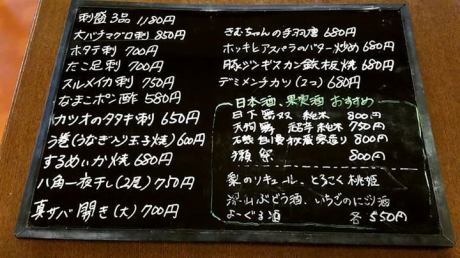 刺盛3品 1180円
大バチマグロ刺 850円
ホタテ刺 700円
たこ足刺 700円
スルメイカ刺 750円
なまこポン酢 580円
カツオのタタキ刺 650円
う巻(うなぎ入り玉子焼) 600円
するめいか焼 680円
八角一夜干し(2尾) 750円
真サバ開き(大) 700円
きむちゃんの手羽唐 680円
ホッキとアスパラのバター炒め 680円
豚ジンギスカン鉄板焼 680円
デミメンチカツ(2コ) 680円
日本酒、果実酒おすすめ
日下無双 純米 800円
天狗舞 純米 750円
石鎚 自慢 秘蔵寒造り 800円
獺祭 800円
梨のリキュール、とろこく桃姫
深山ぶどう酒、いちごのにごり酒
よーぐる酒 各550円